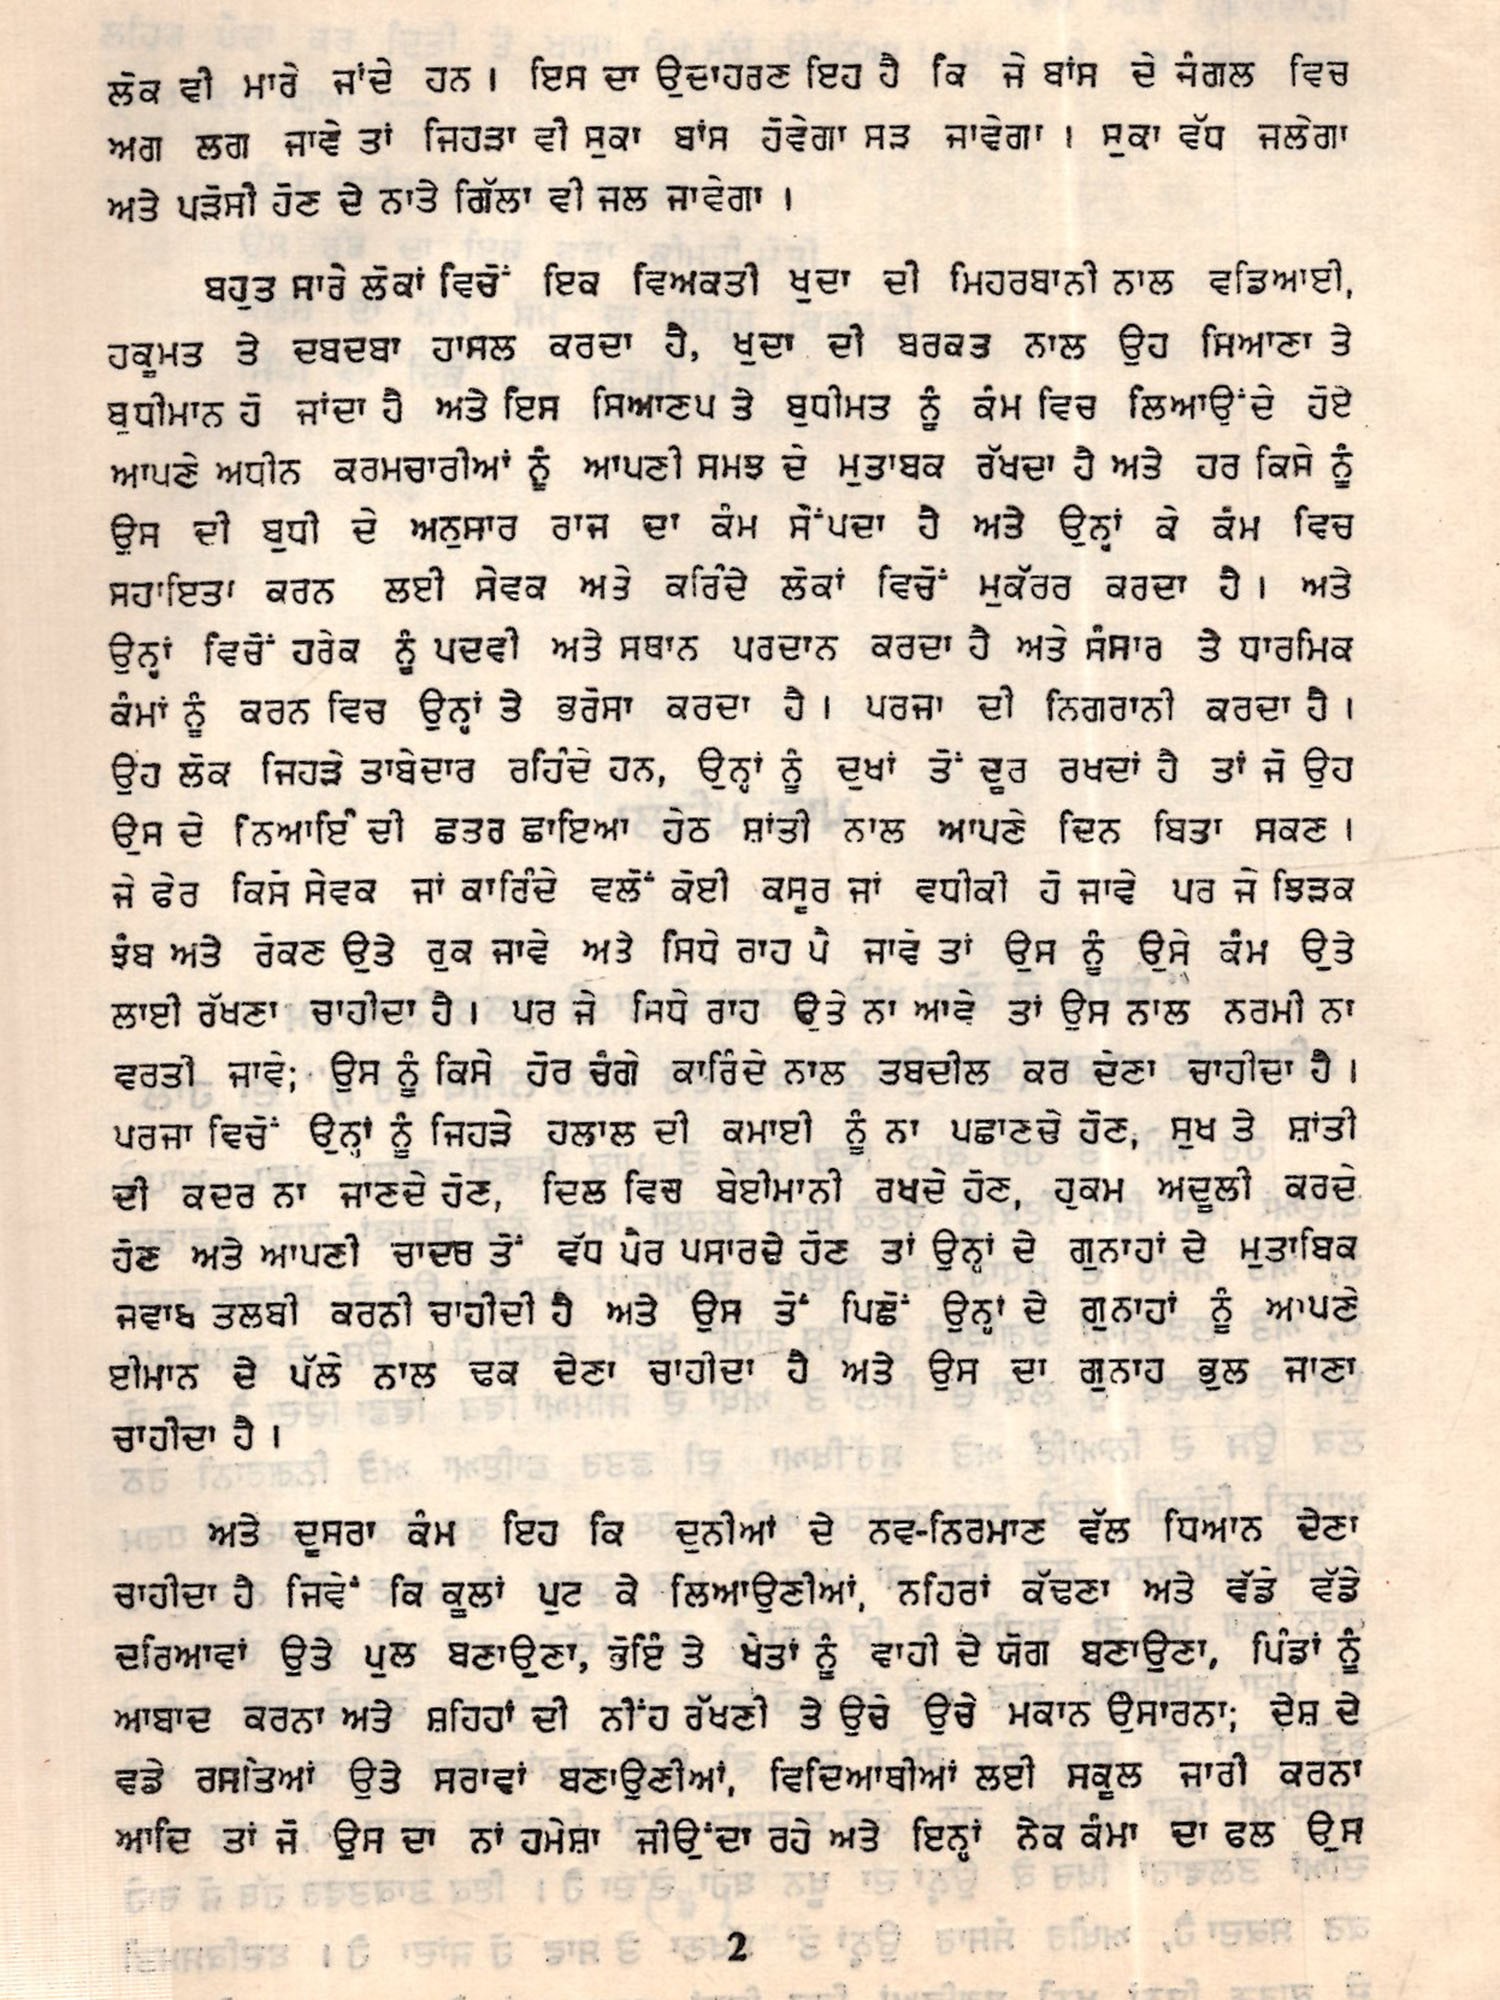 ਲੋਕ ਵੀ ਮਾਰੇ ਜਾਂਦੇ ਹਨ । ਇਸ ਦਾ ਉਦਾਹਰਣ ਇਹ ਹੈ ਕਿ ਜੇ ਬਾਂਸ ਦੇ ਜੰਗਲ ਵਿਚ
ਅਗ ਲਗ ਜਾਵੇ ਤਾਂ ਜਿਹੜਾ ਵੀ ਸੁਕਾ ਬਾਂਸ ਹੋਵੇਗਾ ਸੜ ਜਾਵੇਗਾ । ਸੁਕਾ ਵੱਧ ਜਲੇਗਾ
ਅਤੇ ਪੜੋਸੀ ਹੋਣ ਦੇ ਨਾਤੇ ਗਿੱਲਾ ਵੀ ਜਲ ਜਾਵੇਗਾ ।
ਬਹੁਤ ਸਾਰੇ ਲੋਕਾਂ ਵਿਚੋਂ ਇਕ ਵਿਅਕਤੀ ਖੁਦਾ ਦੀ ਮਿਹਰਬਾਨੀ ਨਾਲ ਵਡਿਆਈ,
ਹਕੂਮਤ ਤੇ ਦਬਦਬਾ ਹਾਸਲ ਕਰਦਾ ਹੈ, ਖੁਦਾ ਦੀ ਬਰਕਤ ਨਾਲ ਉਹ ਸਿਆਣਾ ਤੇ
ਬੁਧੀਮਾਨ ਹੋ ਜਾਂਦਾ ਹੈ ਅਤੇ ਇਸ ਸਿਆਣਪ ਤੇ ਬੁਧੀਮਤ ਨੂੰ ਕੰਮ ਵਿਚ ਲਿਆਉਂਦੇ ਹੋਏ
ਆਪਣੇ ਅਧੀਨ ਕਰਮਚਾਰੀਆਂ ਨੂੰ ਆਪਣੀ ਸਮਝ ਦੇ ਮੁਤਾਬਕ ਰੱਖਦਾ ਹੈ ਅਤੇ ਹਰ ਕਿਸੇ ਨੂੰ
ਉਸ ਦੀ ਬੁਧੀ ਦੇ ਅਨੁਸਾਰ ਰਾਜ ਦਾ ਕੰਮ ਸੌਂਪਦਾ ਹੈ ਅਤੇ ਉਨ੍ਹਾਂ ਕੇ ਕੰਮ ਵਿਚ
ਸਹਾਇਤਾ ਕਰਨ ਲਈ ਸੇਵਕ ਅਤੇ ਕਰਿੰਦੇ ਲੋਕਾਂ ਵਿਚੋਂ ਮੁਕੱਰਰ ਕਰਦਾ ਹੈ । ਅਤੇ
ਉਨ੍ਹਾਂ ਵਿਚੋਂ ਹਰੇਕ ਨੂੰ ਪਦਵੀ ਅਤੇ ਸਥਾਨ ਪਰਦਾਨ ਕਰਦਾ ਹੈ ਅਤੇ ਸੰਸਾਰ ਤੇ ਧਾਰਮਿਕ
ਕੰਮਾਂ ਨੂੰ ਕਰਨ ਵਿਚ ਉਨ੍ਹਾਂ ਤੇ ਭਰੋਸਾ ਕਰਦਾ ਹੈ । ਪਰਜਾ ਦੀ ਨਿਗਰਾਨੀ ਕਰਦਾ ਹੈ ।
ਉਹ ਲੋਕ ਜਿਹੜੇ ਤਾਬੇਦਾਰ ਰਹਿੰਦੇ ਹਨ, ਉਨ੍ਹਾਂ ਨੂੰ ਦੁਖਾਂ ਤੋਂ ਦੂਰ ਰਖਦਾਂ ਹੈ ਤਾਂ ਜੋ ਉਹ
ਉਸ ਦੇ ਨਿਆਇੰ ਦੀ ਛਤਰ ਛਾਇਆ ਹੇਠ ਸ਼ਾਂਤੀ ਨਾਲ ਆਪਣੇ ਦਿਨ ਬਿਤਾ ਸਕਣ ।
ਜੇ ਫੇਰ ਕਿਸੇ ਸੇਵਕ ਜਾਂ ਕਾਰਿੰਦੇ ਵਲੋਂ ਕੋਈ ਕਸੂਰ ਜਾਂ ਵਧੀਕੀ ਹੋ ਜਾਵੇ ਪਰ ਜੇ ਝਿੜਕ
ਝੰਬ ਅਤੇ ਰੋਕਣ ਉਤੇ ਰੁਕ ਜਾਵੇ ਅਤੇ ਸਿਧੇ ਰਾਹ ਪੈ ਜਾਵੇ ਤਾਂ ਉਸ ਨੂੰ ਉਸੇ ਕੰਮ ਉਤੇ
ਲਾਈ ਰੱਖਣਾ ਚਾਹੀਦਾ ਹੈ । ਪਰ ਜੇ ਸਿਧੇ ਰਾਹ ਉਤੇ ਨਾ ਆਵੇ ਤਾਂ ਉਸ ਨਾਲ ਨਰਮੀ ਨਾ
ਵਰਤੀ ਜਾਵੇ; ਉਸ ਨੂੰ ਕਿਸੇ ਹੋਰ ਚੰਗੇ ਕਾਰਿੰਦੇ ਨਾਲ ਤਬਦੀਲ ਕਰ ਦੇਣਾ ਚਾਹੀਦਾ ਹੈ ।
ਪਰਜਾ ਵਿਚੋਂ ਉਨ੍ਹਾਂ ਨੂੰ ਜਿਹੜੇ ਹਲਾਲ ਦੀ ਕਮਾਈ ਨੂੰ ਨਾ ਪਛਾਣਦੇ ਹੋਣ, ਸੁਖ ਤੇ ਸ਼ਾਂਤੀ
ਦੀ ਕਦਰ ਨਾ ਜਾਣਦੇ ਹੋਣ, ਦਿਲ ਵਿਚ ਬੇਈਮਾਨੀ ਰਖਦੇ ਹੋਣ, ਹੁਕਮ ਅਦੂਲੀ ਕਰਦੇ
ਹੋਣ ਅਤੇ ਆਪਣੀ ਚਾਦਰ ਤੋਂ ਵੱਧ ਪੈਰ ਪਸਾਰਦੇ ਹੋਣ ਤਾਂ ਉਨ੍ਹਾਂ ਦੇ ਗੁਨਾਹਾਂ ਦੇ ਮੁਤਾਬਿਕ
ਜਵਾਬ ਤਲਬੀ ਕਰਨੀ ਚਾਹੀਦੀ ਹੈ ਅਤੇ ਉਸ ਤੋਂ ਪਿਛੋਂ ਉਨ੍ਹਾਂ ਦੇ ਗੁਨਾਹਾਂ ਨੂੰ ਆਪਣੇ
ਈਮਾਨ ਦੇ ਪੱਲੇ ਨਾਲ ਢਕ ਦੇਣਾ ਚਾਹੀਦਾ ਹੈ ਅਤੇ ਉਸ ਦਾ ਗੁਨਾਹ ਭੁਲ ਜਾਣਾ
ਚਾਹੀਦਾ ਹੈ ।
ਅਤੇ ਦੂਸਰਾ ਕੰਮ ਇਹ ਕਿ ਦੁਨੀਆਂ ਦੇ ਨਵ-ਨਿਰਮਾਣ ਵੱਲ ਧਿਆਨ ਦੇਣਾ
ਚਾਹੀਦਾ ਹੈ ਜਿਵੇਂ ਕਿ ਕੂਲਾਂ ਪੁਟ ਕੇ ਲਿਆਉਣੀਆਂ, ਨਹਿਰਾਂ ਕੱਢਣਾ ਅਤੇ ਵੱਡੇ ਵੱਡੇ
ਦਰਿਆਵਾਂ ਉਤੇ ਪੁਲ ਬਣਾਉਣਾ, ਭੋਇੰ ਤੇ ਖੇਤਾਂ ਨੂੰ ਵਾਹੀ ਦੇ ਯੋਗ ਬਣਾਉਣਾ, ਪਿੰਡਾਂ ਨੂੰ
ਆਬਾਦ ਕਰਨਾ ਅਤੇ ਸ਼ਹਿਹਾਂ ਦੀ ਨੀਂਹ ਰੱਖਣੀ ਤੇ ਉਚੇ ਉਚੇ ਮਕਾਨ ਉਸਾਰਨਾ; ਦੇਸ਼ ਦੇ
ਵਡੇ ਰਸਤਿਆਂ ਉਤੇ ਸਰਾਵਾਂ ਬਣਾਉਣੀਆਂ, ਵਿਦਿਆਥੀਆਂ ਲਈ ਸਕੂਲ ਜਾਰੀ ਕਰਨਾ
ਆਦਿ ਤਾਂ ਜੋ ਉਸ ਦਾ ਨਾਂ ਹਮੇਸ਼ਾ ਜੀਉਂਦਾ ਰਹੇ ਅਤੇ ਇਨ੍ਹਾਂ ਨੇਕ ਕੰਮਾ ਦਾ ਫਲ ਉਸ
2